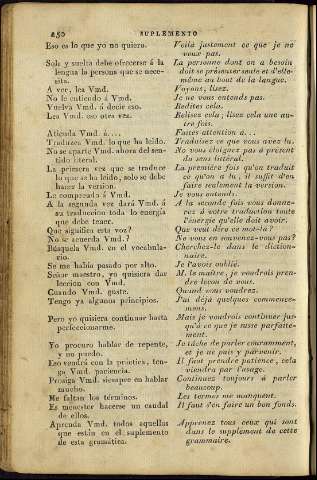 250 SUPLEMENTO
Eso es lo que yo no quiero.
Sola y suelta debe ofrecerse á la
lengua la persona que se nece-
sita.
A ver, lea Vmd.
No le entiendo á Vmd.
Vuelva Vmd. á decir eso.
Lea Vmd. eso otra vez.
Atienda Vmd. á....
Traduzca Vmd. lo que ha leido.
No se aparte Vmd. ahora del sen-
tido literal.
La primera vez que se traduce
lo que se ha leido, solo se debe
hacer la version.
Le comprendo á Vmd.
A la segunda vez dará Vmd. á
su traduccion toda lo energía
que debe tener.
Que significa esta voz?
No se acuerda Vmd.?
Búsquela Vmd. en el vocabula-
rio.
Se me habia pasado por alto.
Señor maestro, yo quisiera dar
leccion con Vmd.
Cuando Vmd. guste.
Tengo ya algunos principios.
Pero yo quisiera continuar hasta
perfeccionarme.
Yo procuro hablar de repente,
y no puedo.
Eso vendrá con la práctica, ten-
ga Vmd. paciencia.
Prosiga Vmd. siempre en hablar
mucho.
Me faltan los términos.
Es menester hacerse un caudal
de ellos.
Aprenda Vmd. todos aquellos
que están en el suplemento
de esta gramática.
Voilà justement ce que je ne
veux pas.
La personne dont on a besoin
doit se présenter seule et d'elle-
même au bout de la langue.
Voyons, lisez.
Je ne vous entends pas.
Redites cela.
Relisez cela; lisez cela une au-
tre fois.
Faites attention à...
Traduisez ce que vous avez lu.
Ne vous éloignez pas à présent
du sens littéral.
La première fois qu'on traduit
ce qu'on a lu, il suffit d'en
faire seulement la version.
Je vous entends.
A la seconde fois vous donne-
rez à votre traduction toute
l'énergie qu'elle doit avoir.
Que veut dire ce mot-là?
Ne vous en souvenez-vous pas?
Cherchez-le dans le diction-
naire.
Je l'avois oublié.
M. le maître, je voudrois pren-
dre lecon de vous.
Quand vous voudrez.
J'ai déjà quelques commence-
mens.
Mais je voudrois continuer jus-
qu'à ce que je susse parfaite-
ment.
Je tâche de parler couramment,
et je ne puis y parvenir.
Il faut prendre patience, cela
viendra par l'usage.
Continuez toujours à parler
beaucoup.
Les termes me manquent.
Il faut s'en faire un bon fonds.
Apprenez tous ceux qui sont
dans le supplément de cette
grammaire.